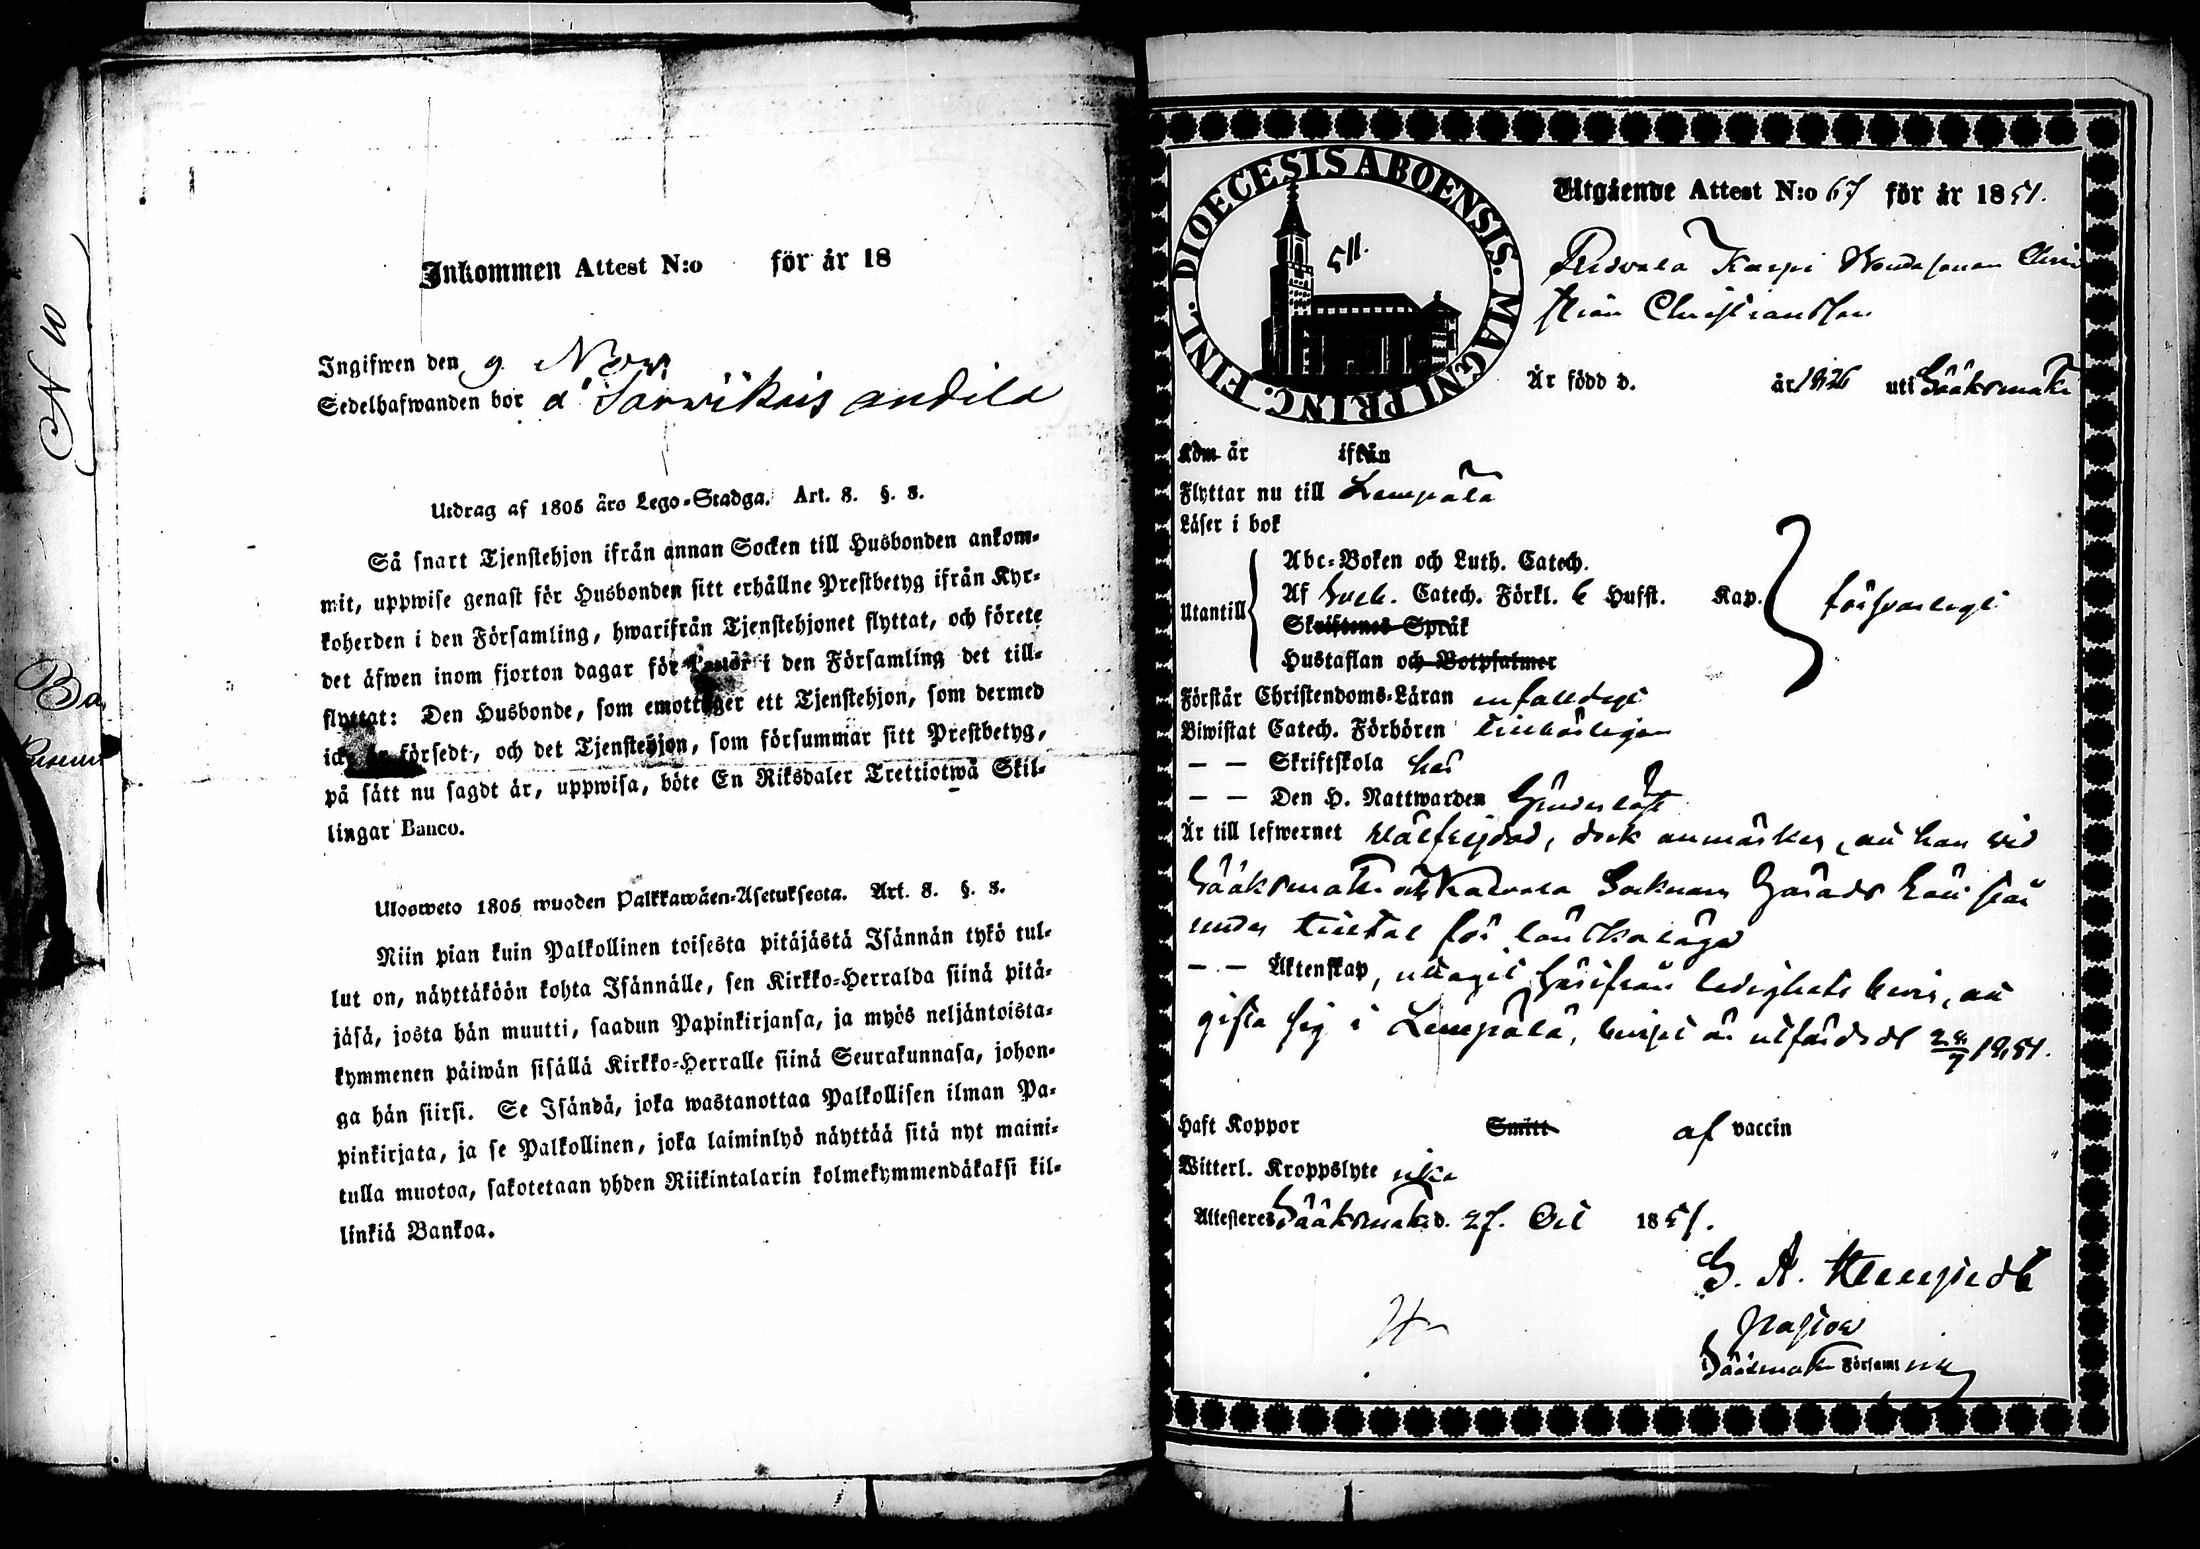 N 10
Ba
Inkommen Attest N:o för år 18
Ingifwen den 9. Nov.
Sedelhafwanden bor å Sarwikais andila
Utdrag af 1805 års Lego-Stadga. Art. 8. §. 8.
Så snart Tjenstehjon ifrån annan Socken till Husbonden ankom-
mit, uppwise genast för Husbonden sitt erhållne Prestbetyg ifrån Kyr-
koherden i den Församling, hwarifrån Tjenstehjonet flyttat, och förete
det äfwen inom fjorton dagar för Pastor i den Församling det till-
flyttat: Den Husbonde, som emottager ett Tjenstehjon, som dermed
icke är försedt, och det Tjenstehjon, som försummar sitt Prestbetyg,
på sätt nu sagdt är, uppwisa, böte En Riksdaler Trettiotwå Skil-
lingar Banco.
Ulosweto 1805 wuoden Palkkawäen-Asetuksesta. Art. 8. §. 8.
Niin pian kuin Palkollinen toisesta pitäjästä Isännän tykö tul-
lut on, näyttäköön kohta Isännälle, sen Kirkko-Herralda siinä pitä-
jäsä, josta hän muutti, saadun Papinkirjansa, ja myös neljäntoista-
kymmenen päiwän sisällä Kirkko-Herralle siinä Seurakunnasa, johon-
ga hän siirsi. Se Isändä, joka wastanottaa Palkollisen ilman Pa-
pinkirjata, ja se Palkollinen, joka laiminlyö näyttää sitä nyt maini-
tulla muotoa, sakotetaan yhden Riikintalarin kolmekymmendäkaksi kil-
linkiä Bankoa.
FINL. DIOECESIS ABOENSIS. MAGNI PRINC.
511.
Utgående Attest N:o 67 för år 1851.
Ridvala Karpi Bondesonen Chri
stian Christiansson
Är född d. år 1826 uti Sääksmäki
Kom år ifrån
Flyttar nu till Lempälä
Läser i bok
Utantill
Abc-Boken och Luth. Catech.
Af Sveb. Catech. Förkl. 6 Hufst. Kap.
Skriftenes Språk
Hustaflan och Botpsalmer
försvarligt
Förstår Christendoms-Läran enfalldigt
Biwistat Catech. Förhören tillbörligen
— — Skriftskola har
— — Den H. Nattwarden
Är till lefwernet wälfrejdad, dock anmärkes, att han vid
Sääksmäki och Kalvola Socknars Härads Rätt står
under tilltal för
— — Äktenskap, uttagit härifrån ledighets bevis, att
gifta sig i Lempälä, beviset är utfärdadt 28/9 1851.
Haft Koppor Smitt af vaccin
Witterl. Kroppslyte icke
Attesteres Sääksmäki d. 27. Oct 1851.
G. A.
Pastor
i Sääksmäki Församling